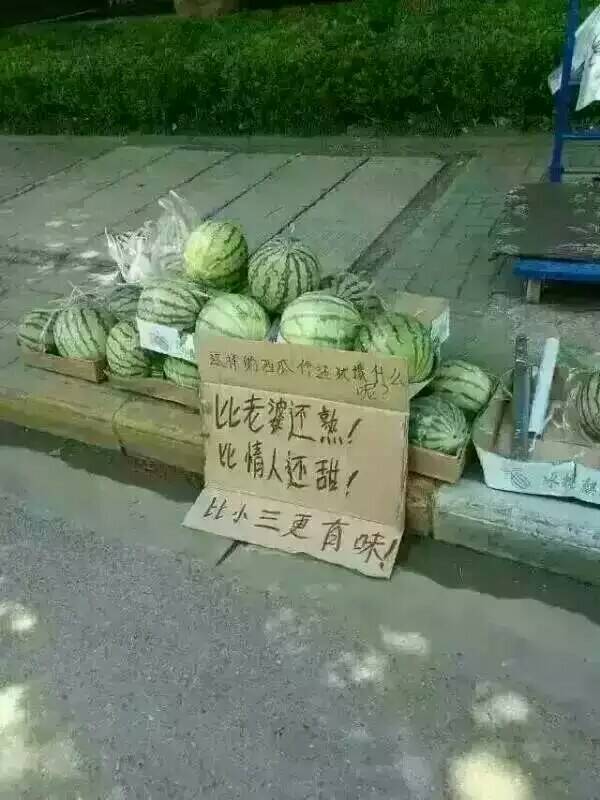 这样的西瓜你还犹豫什么
呢?
比老婆还熟!
比情人还甜!
比小三更有味!